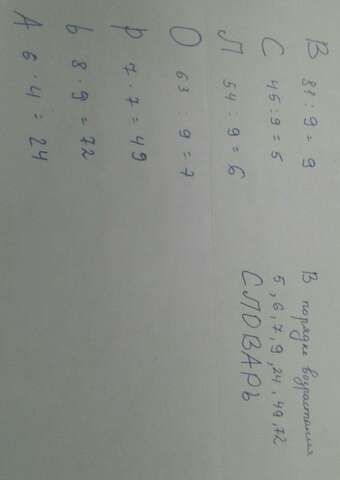 В 81 : 9 = 9
С 45 : 9 = 5
Л 54 : 9 = 6
О 63 : 9 = 7
Р 7 · 7 = 49
Ь 8 · 9 = 72
А 6 · 4 = 24
В порядке возрастания
5, 6, 7, 9, 24, 49, 72
СЛОВАРЬ